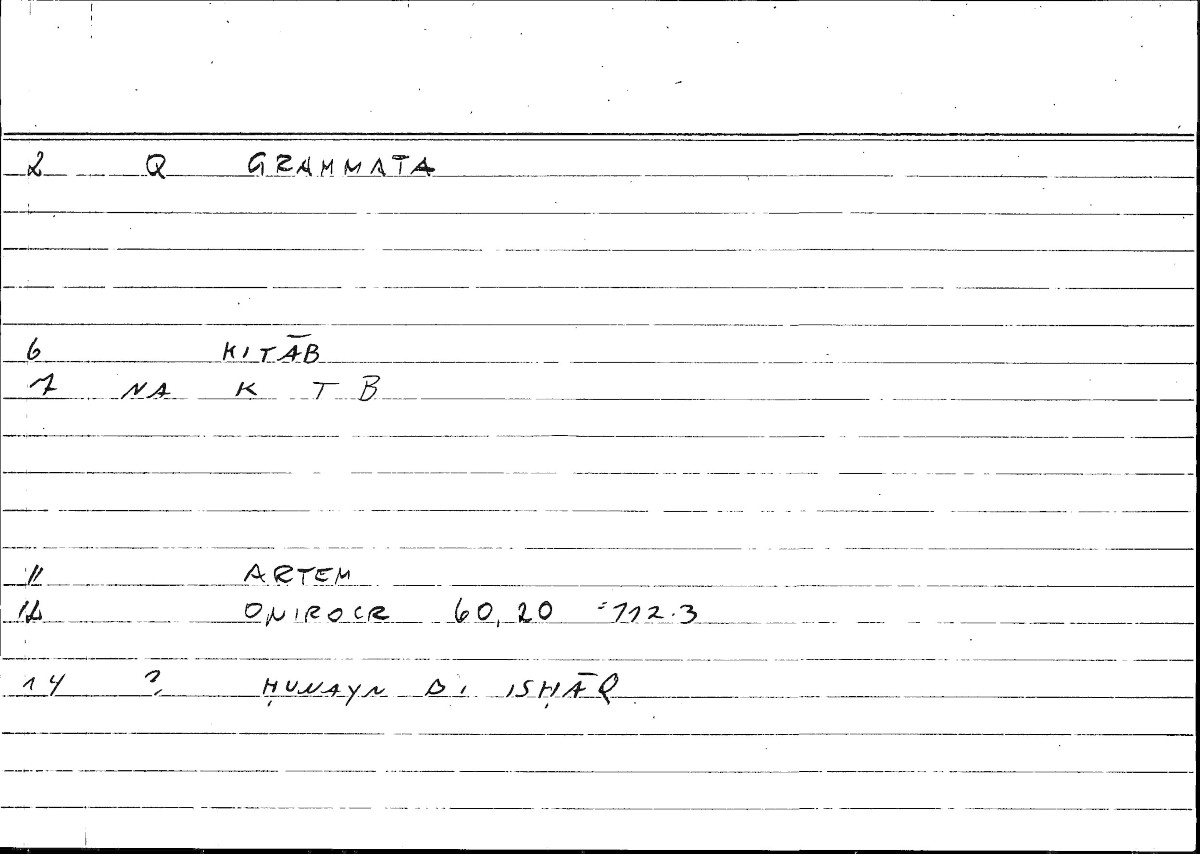 2 Q GRAMMATA
6 KITĀB
7 NA K T B
11 ARTEM
12 ONIROCR 60,20 =112.3
14 ? ḤUNAYN B. ISḤĀQ